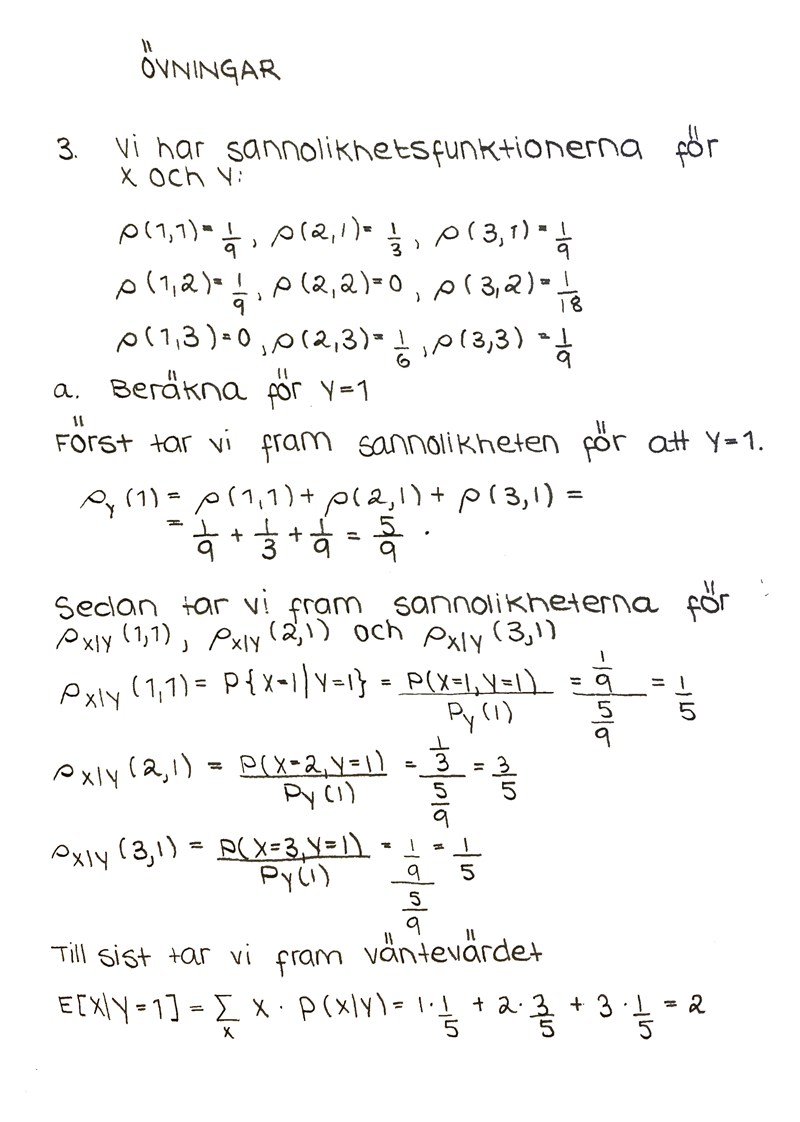 ÖVNINGAR
3. Vi har sannolikhetsfunktionerna för
X och Y:
p(1,1)=1/9, p(2,1)=1/3, p(3,1)=1/9
p(1,2)=1/9, p(2,2)=0, p(3,2)=1/18
p(1,3)=0, p(2,3)=1/6, p(3,3)=1/9
a. Beräkna för Y=1
Först tar vi fram sannolikheten för att Y=1.
p_Y(1) = p(1,1) + p(2,1) + p(3,1) =
= 1/9 + 1/3 + 1/9 = 5/9.
Sedan tar vi fram sannolikheterna för
p_X|Y(1,1), p_X|Y(2,1) och p_X|Y(3,1)
p_X|Y(1,1) = P{X=1|Y=1} = P(X=1, Y=1)/P_Y(1) = (1/9)/(5/9) = 1/5
p_X|Y(2,1) = P(X=2, Y=1)/P_Y(1) = (1/3)/(5/9) = 3/5
p_X|Y(3,1) = P(X=3, Y=1)/P_Y(1) = (1/9)/(5/9) = 1/5
Till sist tar vi fram väntevärdet
E[X|Y=1] = Σ_x X · P(X|Y) = 1·1/5 + 2·3/5 + 3·1/5 = 2